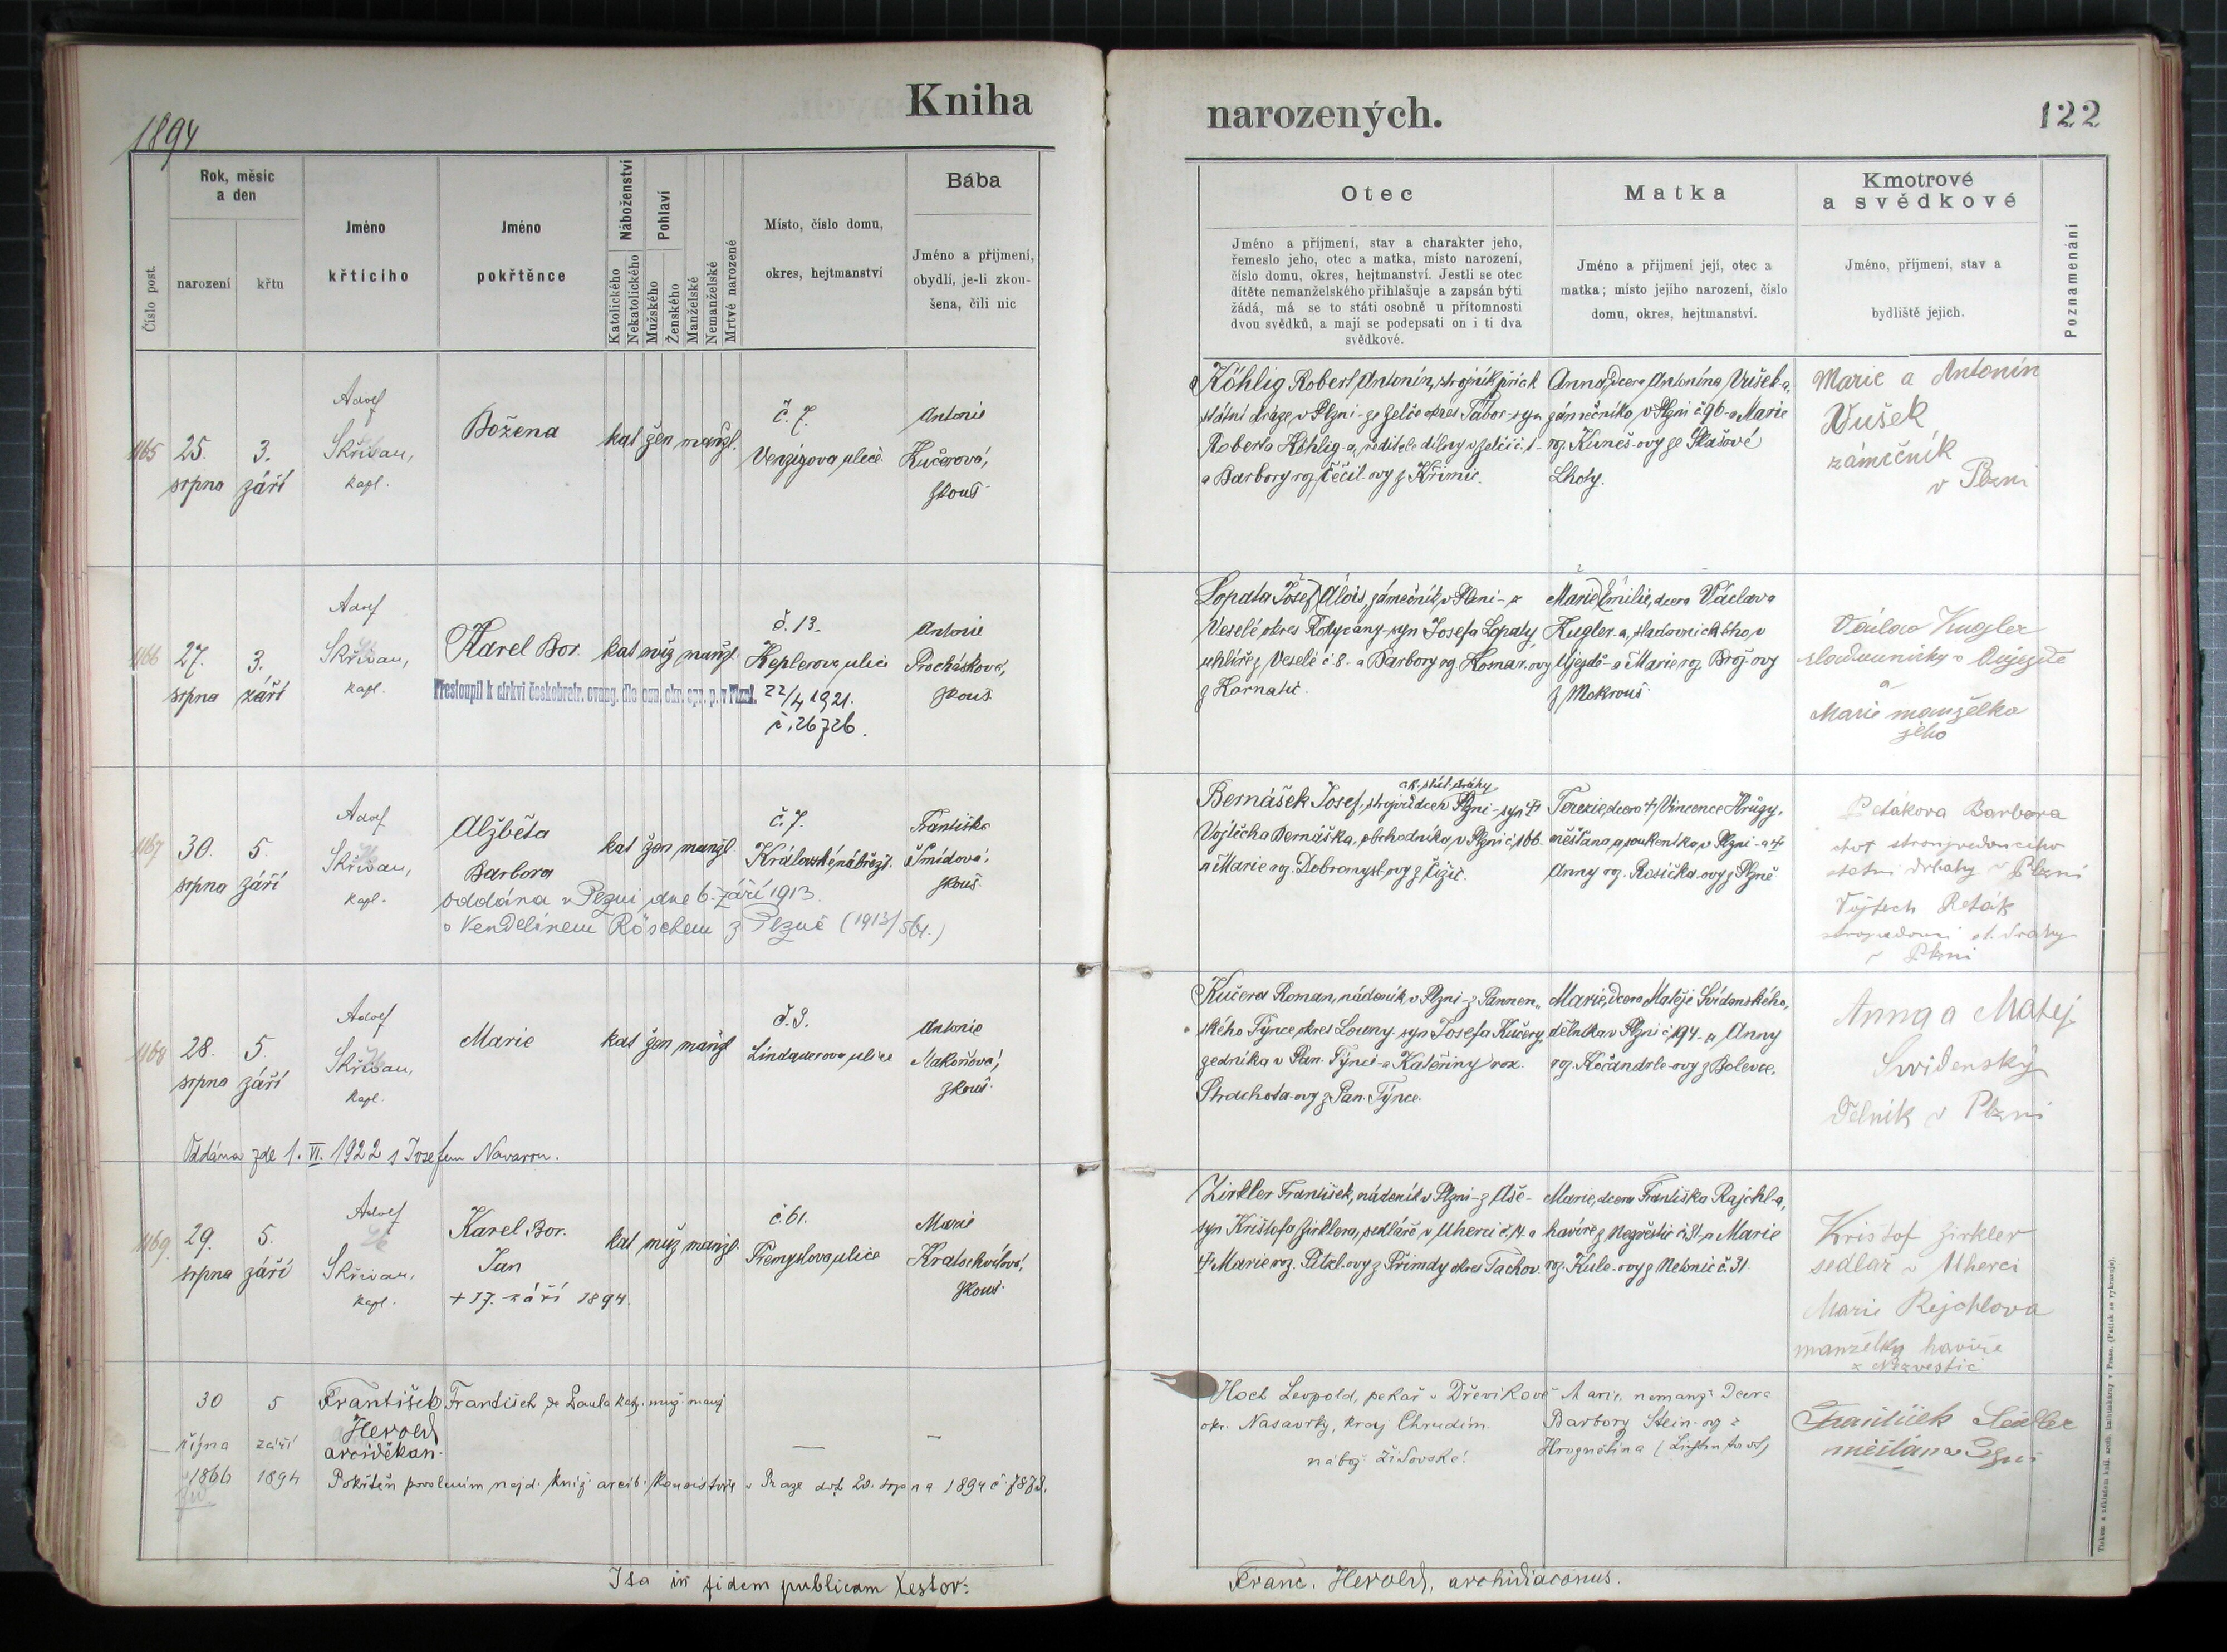 Kniha
narozených.
122
1894
Číslo post.
Rok, měsíc
a den
narození
křtu
Jméno
křtícího
Jméno
pokřtěnce
Náboženství
Katolického
Nekatolického
Pohlaví
Mužského
Ženského
Manželské
Nemanželské
Mrtvě narozené
Místo, číslo domu,
okres, hejtmanství
Bába
Jméno a příjmení,
obydlí, je-li zkou-
šena, čili nic
Otec
Jméno a příjmení, stav a charakter jeho,
řemeslo jeho, otec a matka, místo narození,
číslo domu, okres, hejtmanství. Jestli se otec
dítěte nemanželského přihlašuje a zapsán býti
žádá, má se to státi osobně u přítomnosti
dvou svědků, a mají se podepsati on i ti dva
svědkové.
Matka
Jméno a příjmení její, otec a
matka; místo jejího narození, číslo
domu, okres, hejtmanství.
Kmotrové
a svědkové
Jméno, příjmení, stav a
bydliště jejich.
Poznamenání
1165
25.
srpna
3.
září
Adolf
Skřivan,
kapl.
Božena
kat žen manžl.
č. 7.
Venzigova ulice
Antonie
Kučerová,
zkouš.
Köhlig Robert Antonín, strojník při c.k.
státní dráze, v Plzni - ze Želče okres Tábor - syn
Roberta Köhlig-a, ředitele dílny v Želči č. 1 -
a Barbory roz. Čečil-ovy z Křimic.
Anna, dcera Antonína Vušek-a,
zámečníka, v Plzni č. 96 - a Marie
roz. Kuneš-ovy ze Skašové
Lhoty.
Marie a Antonín
Vušek
zámečník
v Plzni
1166
27.
srpna
3.
září
Adolf
Skřivan,
kapl.
Karel Bor.
kat muž manžl.
Přestoupil k církvi českobratr. evang. dle ozn. okr. spr. p. v Plzni.
č. 13.
Keplerova ulice
22/4 1921.
č. 26726.
Antonie
Procházková,
zkouš.
Lopata Josef Alois, zámečník, v Plzni - z
Veselé, okres Rokycany - syn Josefa Lopaty
uhlíře z Veselé č 8 - a Barbory roz. Komar-ovy
z Kornatic.
Marie Emilie, dcera Václava
Kugler-a, sladovnického, v
Újezdě - a Marie roz. Brož-ovy
z Mokrouš.
Václav Kugler
sladovnický v Oujezdě
a
Marie manželka
jeho
1167
30.
srpna
5.
září
Adolf
Skřivan,
kapl.
Alžběta
Barbora
kat žen manžl
č. 7.
Františka
Šmídová,
zkouš.
oddána v Plzni dne 6. září 1913
s Vendelínem Röschem z Plzně (1913/564.)
c.k. stát. dráhy
Bernášek Josef, strojvůdce v Plzni - syn †
Vojtěcha Bernáška, obchodníka, v Plzni č. 166
a Marie roz. Dobromysl-ovy z Čižic.
Terezie, dcera † Vincence Krügy,
měšťana a soukeníka, v Plzni - a †
Anny roz. Rosička-ovy z Plzně
Petákova Barbora
státní dráhy v Plzni
Vojtěch Peták
v Plzni
1168
28.
srpna
5.
září
Adolf
Skřivan,
kapl.
Marie
kat žen manžl
č. 3.
Lindauerova ulice
Antonie
Makoňová,
zkouš.
Oddána zde 1. VI. 1922 s Josefem Navarou.
Kučera Roman, nádeník, v Plzni - z Pannen-
ského Týnce, okres Louny - syn Josefa Kučery,
zedníka v Pan. Týnci - a Kateřiny roz.
Strachota-ovy z Pan. Týnce.
Marie, dcera Matěje Svídenského,
dělníka v Plzni č. 194 - a Anny
roz. Kočandrle-ovy z Bolevce.
Anna a Matej
Svidenský
Dělník v Plzni
1169.
29.
srpna
5.
září
Adolf
Skřivan,
kapl.
Karel Bor.
Jan
+ 17. září 1894.
kat muž manžl.
č. 61.
Přemyslova ulice
Marie
Kratochvílová,
zkouš.
Zirkler František, nádeník v Plzni - z Aše -
syn Krištofa Zirklera, sedláře, v Uherci č. 14. a
† Marie roz. Pitzl-ovy z Přimdy okres Tachov.
Marie, dcera Františka Rajchl-a,
havíře z Nezvěstic č. 31 - a Marie
roz. Kule-ovy z Netunic č. 31.
Krištof Zirkler
sedlář v Uherci
Marie Rejchlova
manželka havíře
z Nezvestic
30
října
1866
5
září
1894
František
Herold
arciděkan.
František de Paula kat. muž manž
Pokřtěn povolením nejd. kníž. arcib. konsistoře v Praze ddt. 20. srpna 1894 č. 7873.
Hoch Leopold, pekař v Dřevikově
okr. Nasavrky, kraj Chrudim.
nábož. židovské!
Marie, nemanž. dcera
Barbory Stein-ov z
Hroznětína (Lichtenstadt)
František Sedler
měšťan v Plzni
Ita in fidem publicam testor:
Franc. Herold, archidiaconus.